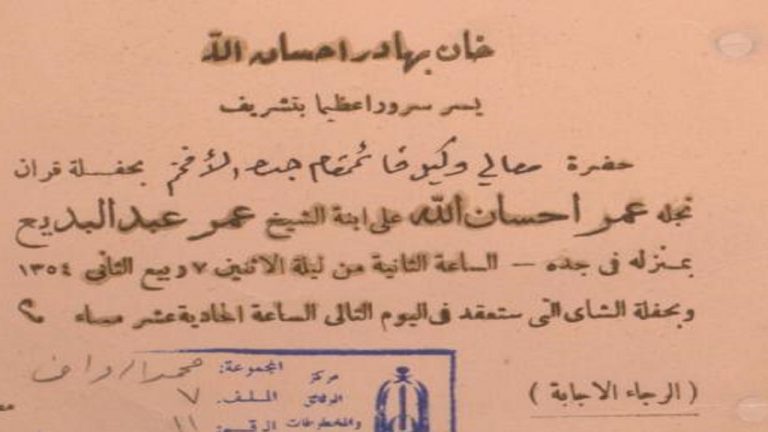 خان بهادر احسان الله
يسر سرورا عظيما بتشريف
حضرة معالي وكيل قائمقام جده الأفخم بحفلة قران
نجله عمر احسان الله على ابنة الشيخ عمر عبد البديع
بمنزله فى جده — الساعة الثانية من ليلة الاثنين ٧ ربيع الثانى ١٣٥٤
وبحفلة الشاى التى ستعقد فى اليوم التالى الساعة الحادية عشر مساء
( الرجاء الاجابة )
مركز الوثائق والمخطوطات
المجموعة:
الملف: ٧
الرقم: ١١